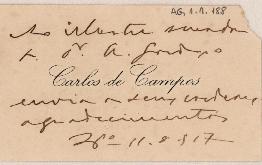 AG, 1.1.188
Ao illustre
Dr. A. Gordo
Carlos de Campos
envia os seus cordeaes
agradecimentos
11-8-917